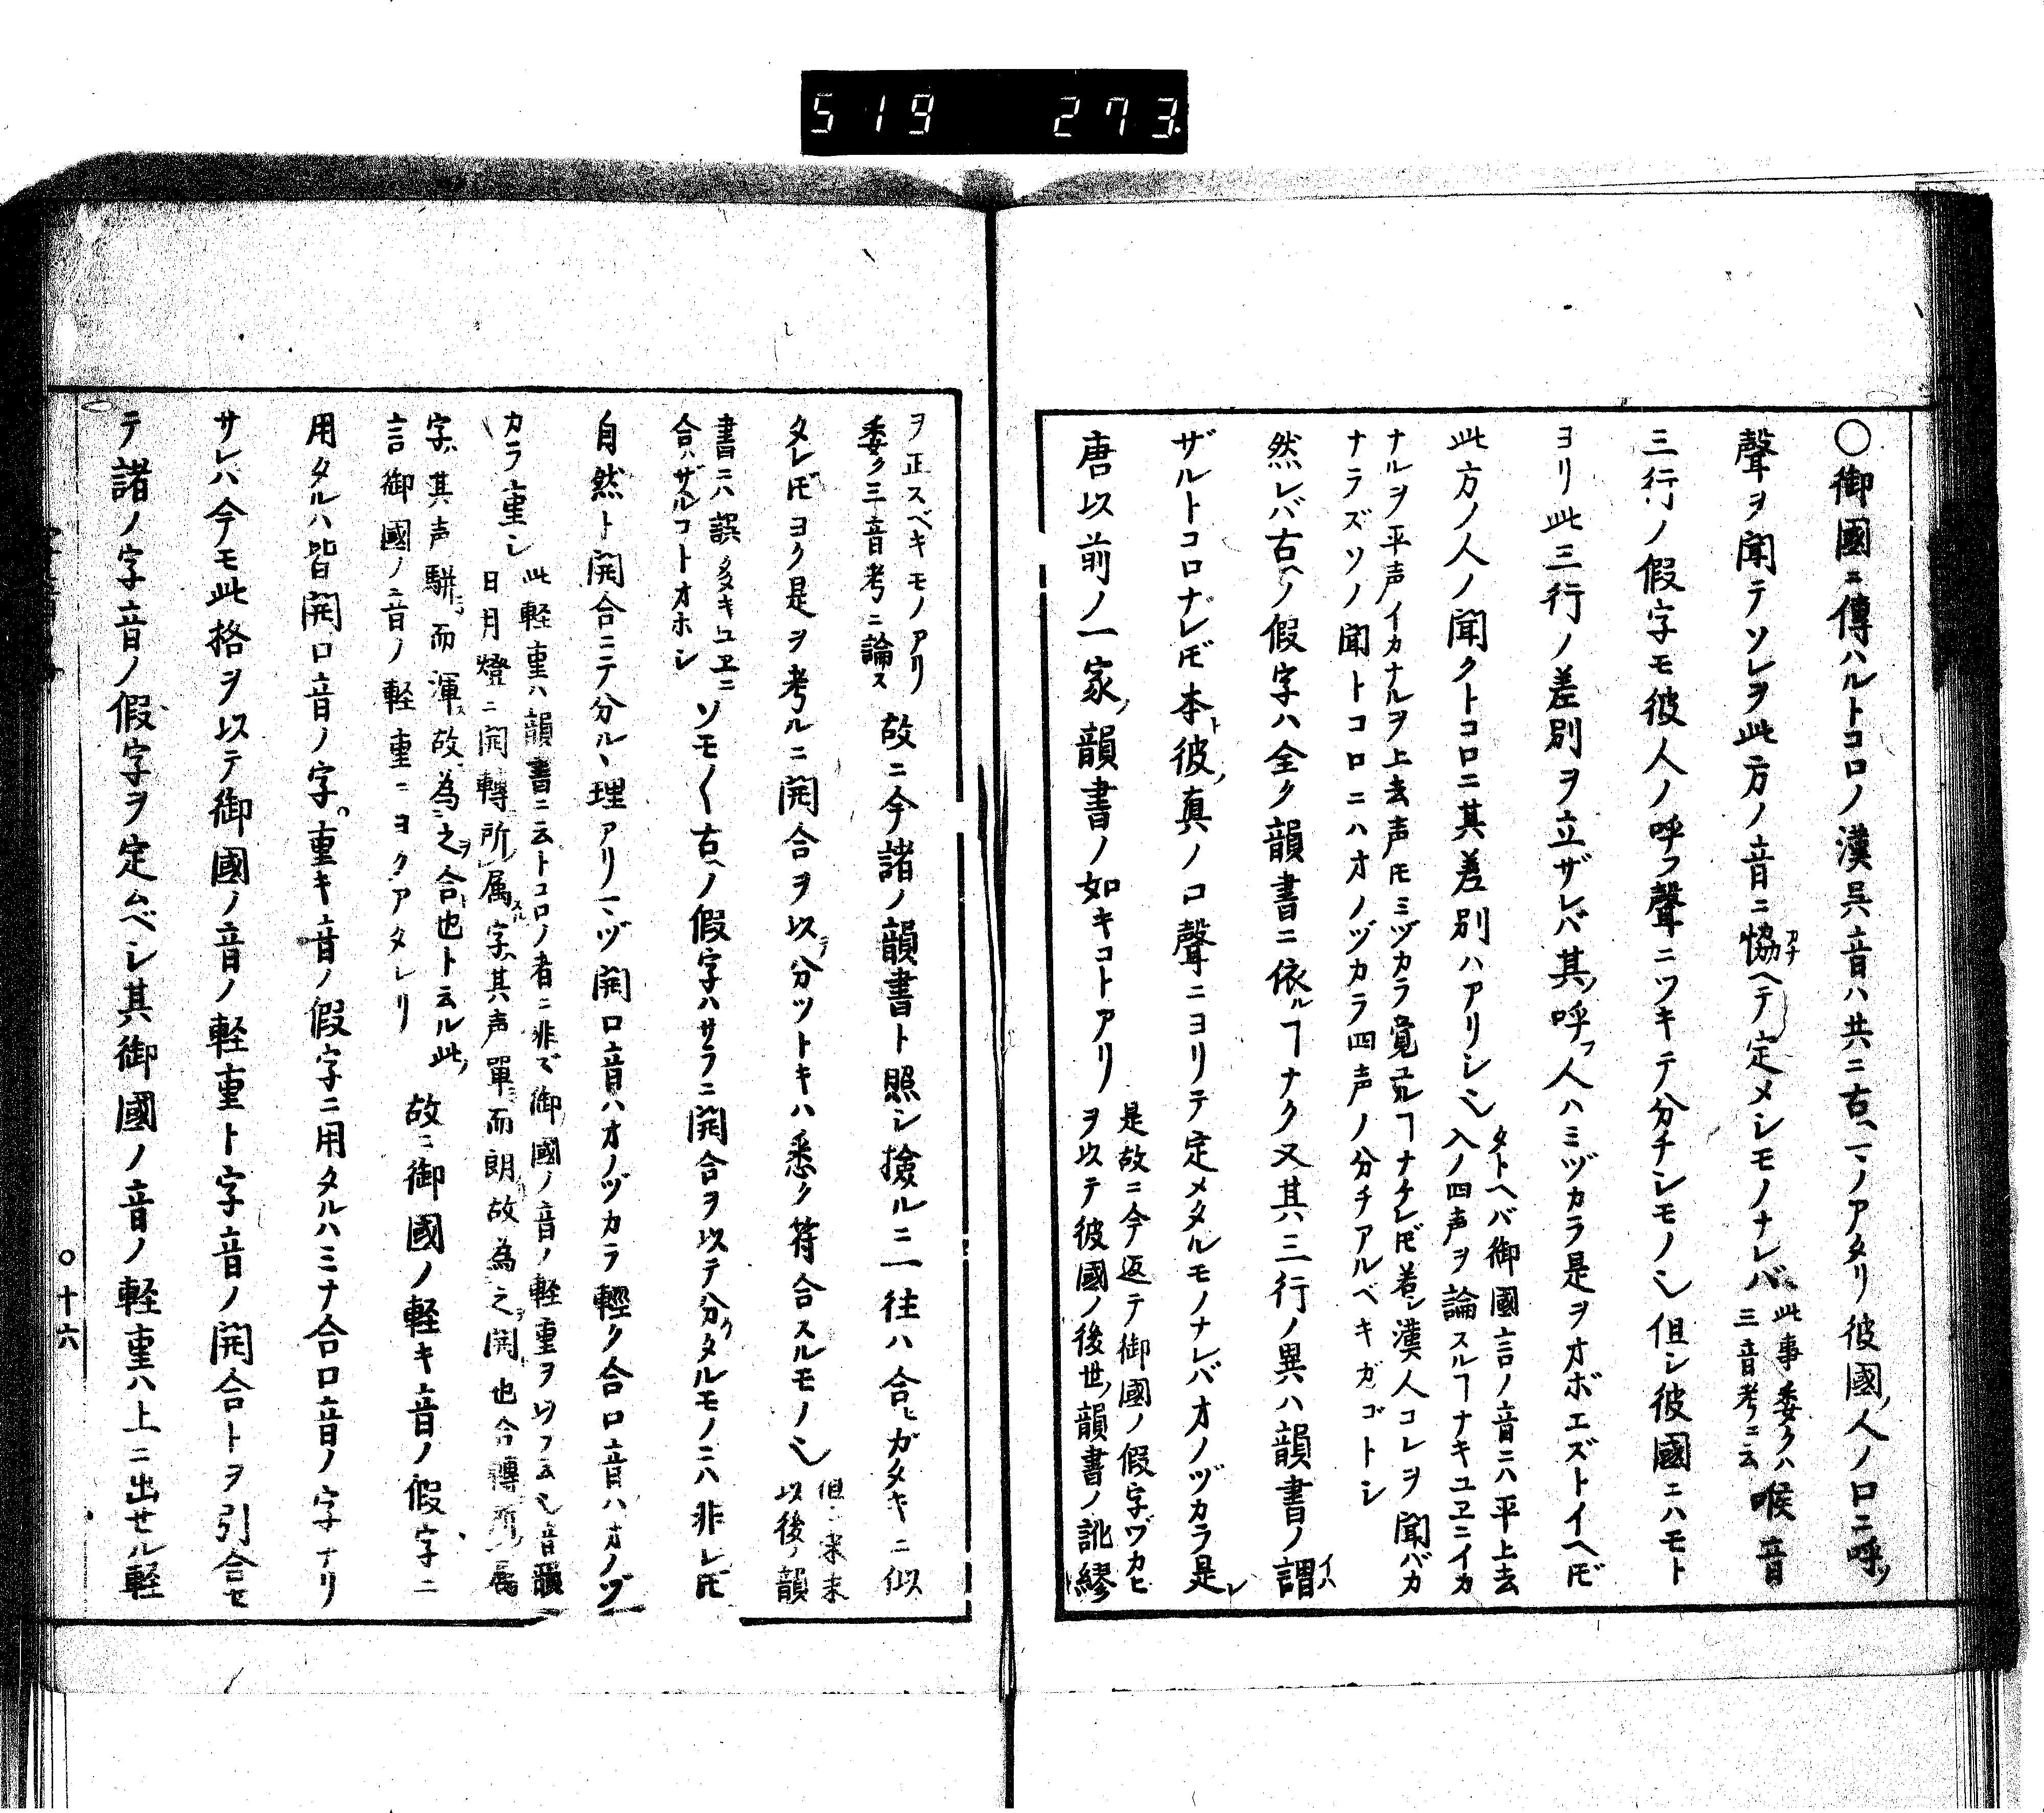 519 273.
〇御國ニ傳ハルトコロノ漢呉音ハ共ニ古ヘマノアタリ彼國ノ人ノ口ニ呼ノ
聲ヲ聞テソレヲ此方ノ音ニ協ヘテ定メシモノナレバ此事委クハ三音考ニ云喉音
三行ノ假字モ彼人ノ呼フ聲ニツキテ分チシモノ也但シ彼國ニハモト
ヨリ此三行ノ差別ヲ立ザレバ其ノ呼フ人ハミヅカラ是ヲオボエズトイヘ𪜈
此方ノ人ノ聞クトコロニ其差別ハアリシ也タトヘバ御國言ノ音ニハ平上去入ノ四声ヲ論スルヿナキユヱニイカ
ナルヲ平声イカナルヲ上去声𪜈ミヅカラ覚ユルヿナケレ𪜈若シ漢人コレヲ聞バカナラズソノ聞トコロニハオノヅカラ四声ノ分チアルベキガゴトシ
然レバ古ヘノ假字ハ全ク韻書ニ依ルヿナク又其三行ノ異ハ韻書ノ謂イハ
ザルトコロナレ𪜈本ト彼ノ真ノコ聲ニヨリテ定メタルモノナレバオノヅカラ是レ
唐以前ノ一家ノ韻書ノ如キコトアリ是故ニ今返テ御國ノ假字ヅカヒヲ以テ彼國ノ後世ノ韻書ノ訛繆
ヲ正スベキモノアリ委ク三音考ニ論ス故ニ今諸ノ韻書ト照シ撿ルニ一往ハ合ヒガタキニ似
タレ𪜈ヨク是ヲ考ルニ開合ヲ以テ分ツトキハ悉ク符合スルモノ也但シ宋末以後ノ韻
書ニハ誤多キユヱニ合ハザルコトオホシソモ〱古ヘノ假字ハサラニ開合ヲ以テ分クタルモノニハ非レ𪜈
自然ト開合ニテ分ルヽ理アリマヅ開口音ハオノヅカラ輕ク合口音ハオノヅ
カラ重シ此軽重ハ韻書ニ云トコロノ者ニ非ズ御國ノ音ノ軽重ヲ以フ云也音韻日月燈ニ開轉ノ所属スル字ハ其声單而朗故為之ヲ開ト也合轉ノ所属
字ハ其声駢而渾故為之ヲ合ト也ト云ル此ノ言御國ノ音ノ軽重ニヨクアタレリ故ニ御國ノ軽キ音ノ假字ニ
用タルハ皆開口音ノ字重キ音ノ假字ニ用タルハミナ合口音ノ字ナリ
サレハ今モ此格ヲ以テ御國ノ音ノ軽重ト字音ノ開合トヲ引合セ
テ諸ノ字音ノ假字ヲ定ムベシ其御國ノ音ノ軽重ハ上ニ出セル軽
〇十六